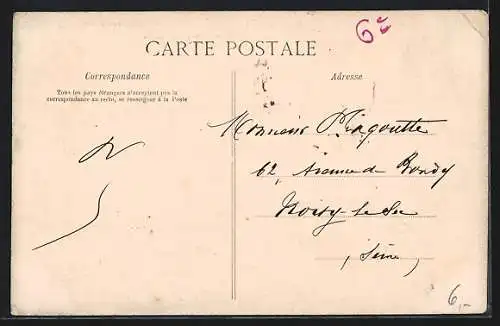 6c
CARTE POSTALE
Correspondance
Tous les pays étrangers n'acceptent pas la
correspondance au recto, se renseigner à la Poste
Adresse
Monsieur Plagoutte
62, Avenue de Bondy
Noisy-le-Sec
(Seine)
6,-